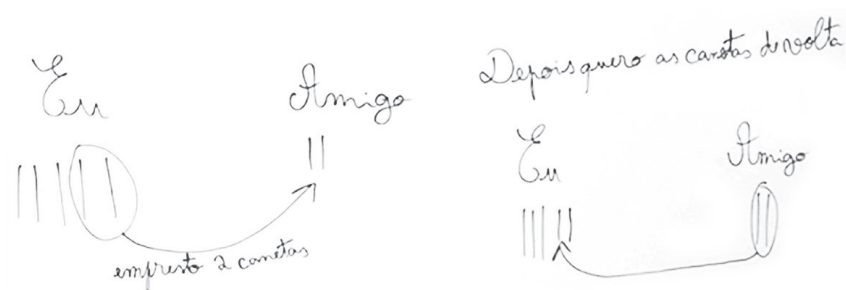 Eu
Amigo
empresto 2 canetas
Depois quero as canetas de volta
Eu
Amigo